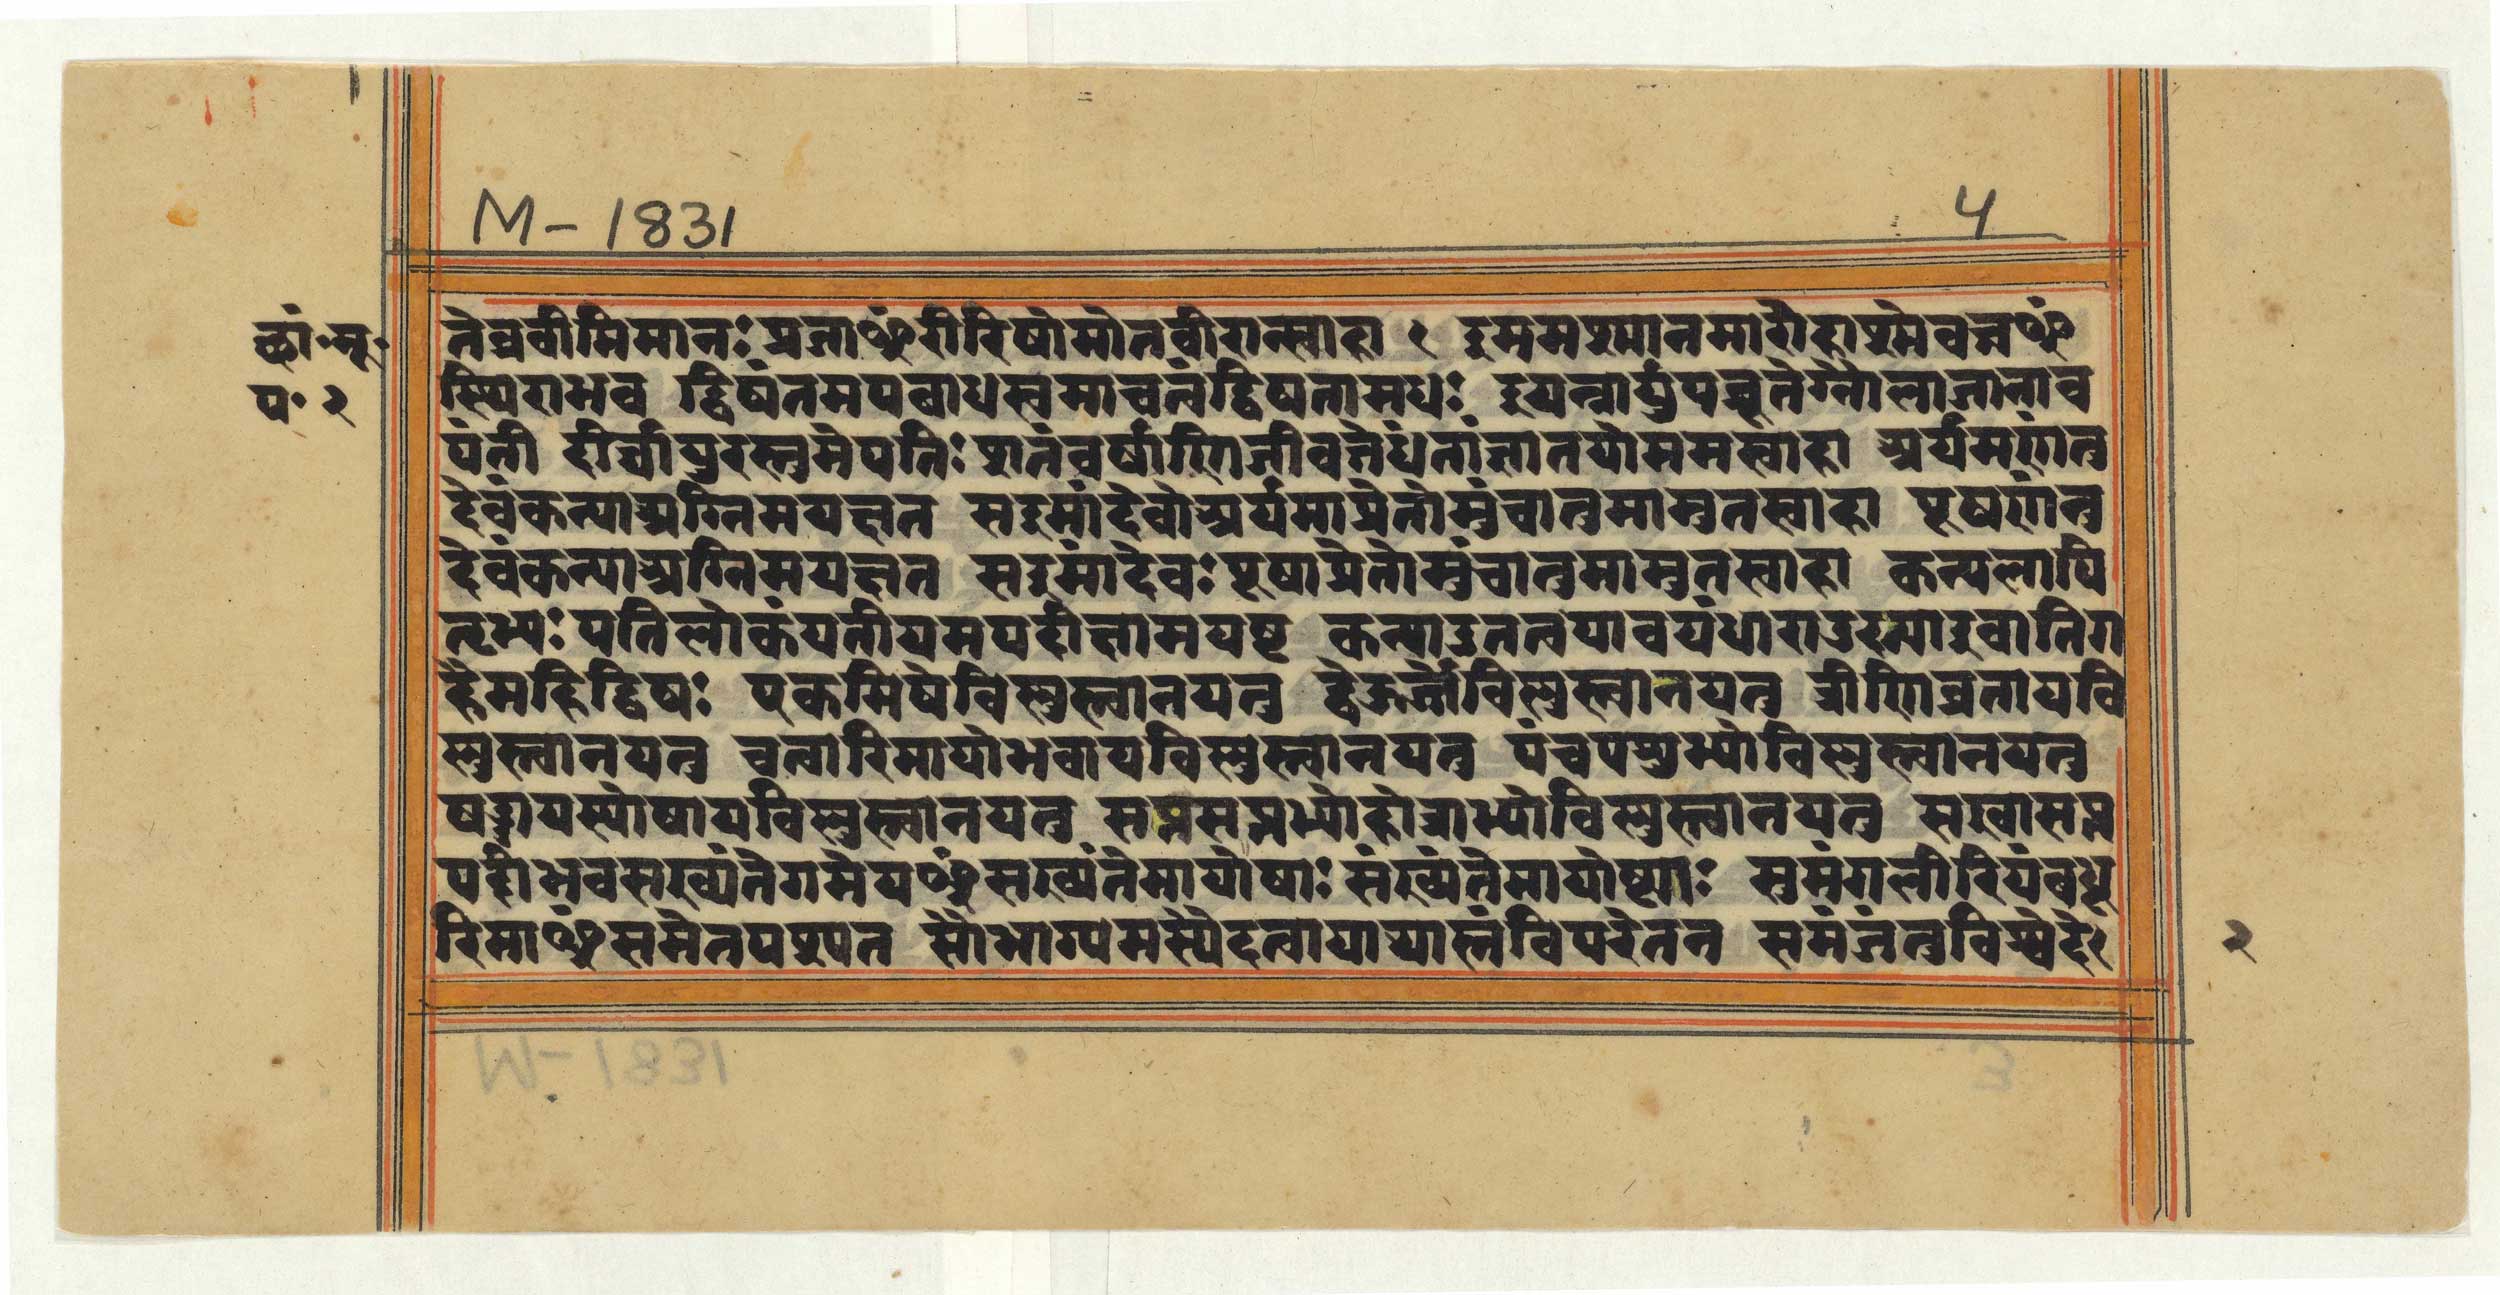 M-1831
५
छां॰ मू॰
प॰ २
ते ब्रवीमि मानः प्रजाꣳ रीरिषो मोत वीरान्स्वाहा १ इममश्मानमारोहाश्मेव त्वꣳ
स्थिरा भव द्विषंतमपबाधस्व मा च त्वं द्विषतामधः इयं नार्युपब्रूतेग्नौ लाजानाव
पंती दीर्घायुरस्तु मे पतिः शतं वर्षाणि जीवत्वेधंतां ज्ञातयो मम स्वाहा अर्यमणं नु
देवं कन्या अग्निमयक्षत स इमां देवो अर्यमा प्रेतो मुंचातु मामुत स्वाहा पूषणं नु
देवं कन्या अग्निमयक्षत स इमां देवः पूषा प्रेतो मुंचातु मामुत स्वाहा कन्यला पि
तृभ्यः पतिलोकं यतीयमपदीक्षामयष्ट कन्या उत त्वया वयं धारा उदन्या इवातिगा
हेमहि द्विषः एकमिषे विष्णुस्त्वा नयतु द्वे ऊर्ज्जे विष्णुस्त्वा नयतु त्रीणि व्रताय वि
ष्णुस्त्वा नयतु चत्वारि मायोभवाय विष्णुस्त्वा नयतु पंच पशुभ्यो विष्णुस्त्वा नयतु
षड्रायस्पोषाय विष्णुस्त्वा नयतु सप्त सप्तभ्यो होत्राभ्यो विष्णुस्त्वा नयतु सखा सप्त
पदी भव सख्यं ते गमेयꣳ सख्यं ते मा योषाः सख्यं ते मा योष्ठ्याः सुमंगलीरियं वधू
रिमाꣳ समेत पश्यत सौभाग्यमस्यै दत्वायाथास्तं विपरेतन समंजंतु विश्वे दे१
२